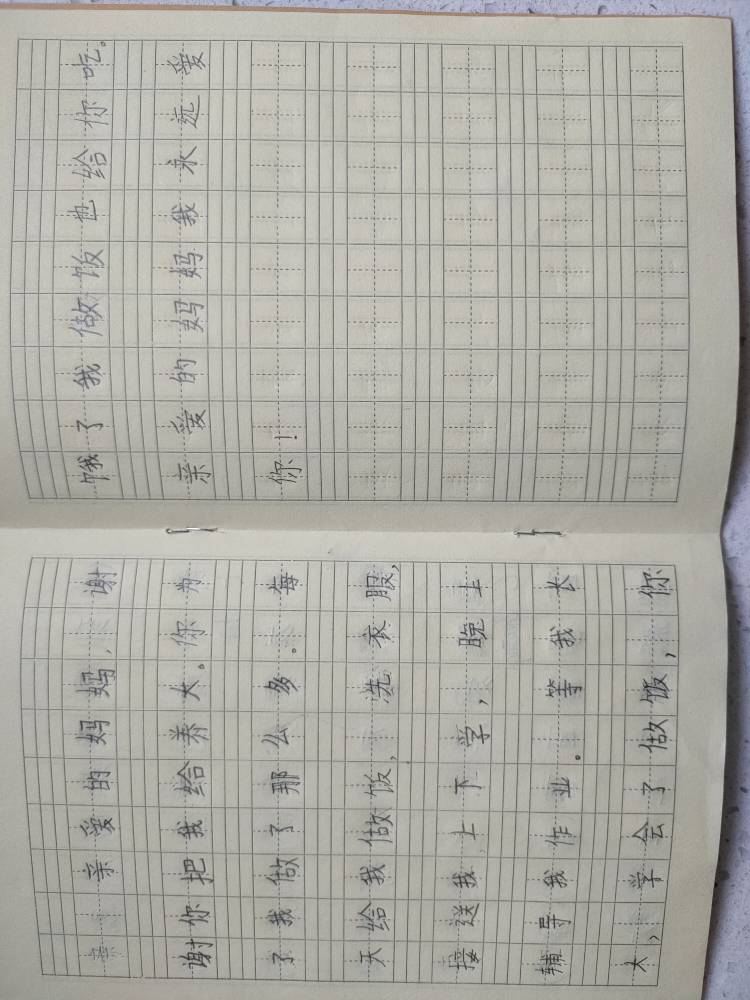 亲爱的妈妈，谢
谢你把我给养大。你为
了我做了那么多。每
天给我做饭，洗衣服，
接送我上下学，晚上
辅导我作业。等我长
大，学会了做饭，你
饿了我做饭也给你吃。
亲爱的妈妈我永远爱
你！